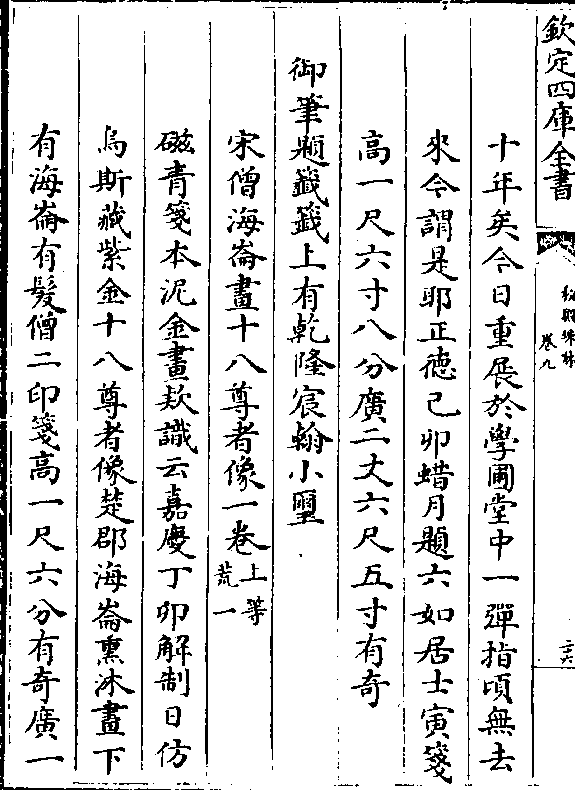 欽定四庫全書
秘殿珠林
卷九
二六
十年矣今日重展於學圃堂中一彈指頃無去
來今謂是耶正德己卯蜡月題六如居士寅箋
高一尺六寸八分廣二丈六尺五寸有奇
御筆題籤籤上有乾隆宸翰小璽
宋僧海崙畫十八尊者像一卷上等荒一
磁青箋本泥金畫欵識云嘉慶丁卯解制日仿
烏斯藏紫金十八尊者像楚郡海崙熏沐畫下
有海崙有髮僧二印箋高一尺六分有奇廣一